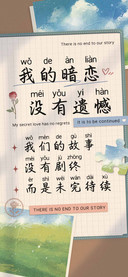 There is no end to our story
wǒ de àn liàn
我的暗恋
méi yǒu yí hàn
没有遗憾
My secret love has no regrets
It is to be continued
wǒ men de gù shi
我们的故事
méi yǒu jù zhōng
没有剧终
ér shì wèi wán dài xù
而是未完待续
THERE IS NO END TO OUR STORY